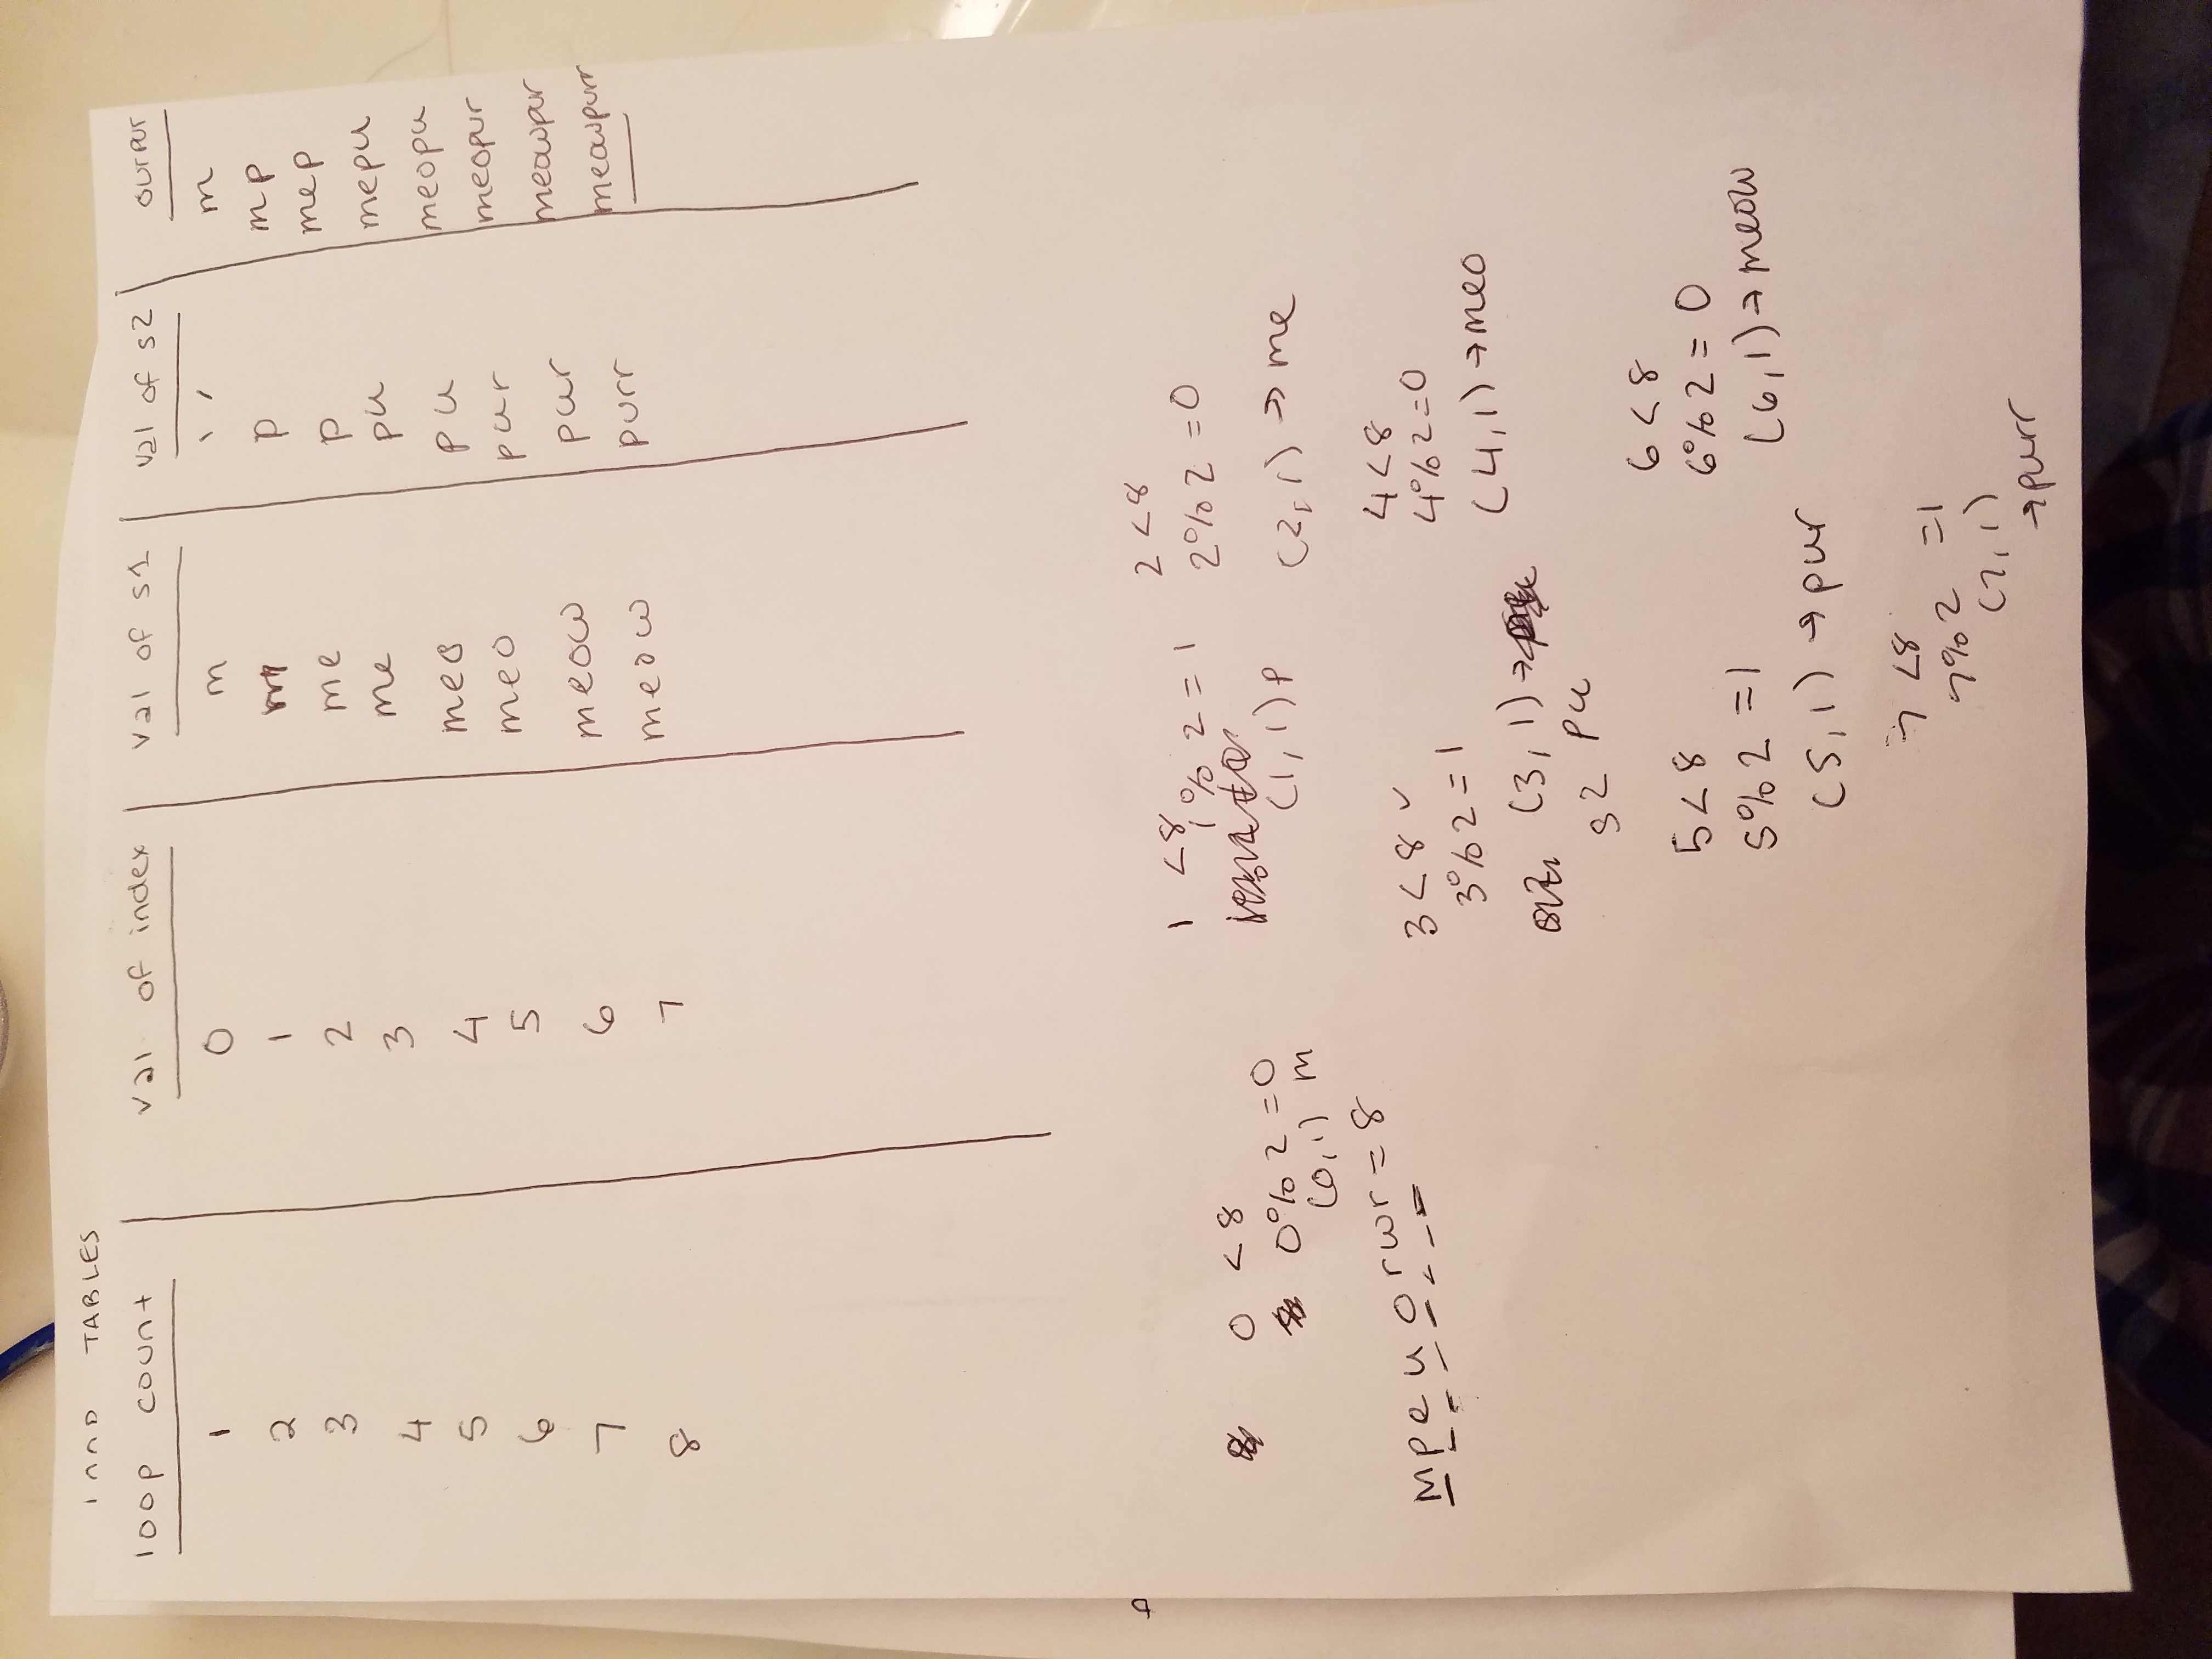 LOOP TABLES
loop count val of index val of s1 val of s2 OUTPUT
1 0 m ' ' m
2 1 m p mp
3 2 me p mep
4 3 me pu mepu
5 4 meo pu meopu
6 5 meo pur meopur
7 6 meow pur meowpur
8 7 meow purr meowpurr
0 < 8
0 % 2 = 0
(0,1) m
Mpeuorwr = 8
1 < 8
1 % 2 = 1
(1,1) p
2 < 8
2 % 2 = 0
(2,1) → me
3 < 8 ✓
3 % 2 = 1
(3,1) →
s2 pu
4 < 8
4 % 2 = 0
(4,1) → meo
5 < 8
5 % 2 = 1
(5,1) → pur
6 < 8
6 % 2 = 0
(6,1) → meow
7 < 8
7 % 2 = 1
(7,1)
→ purr